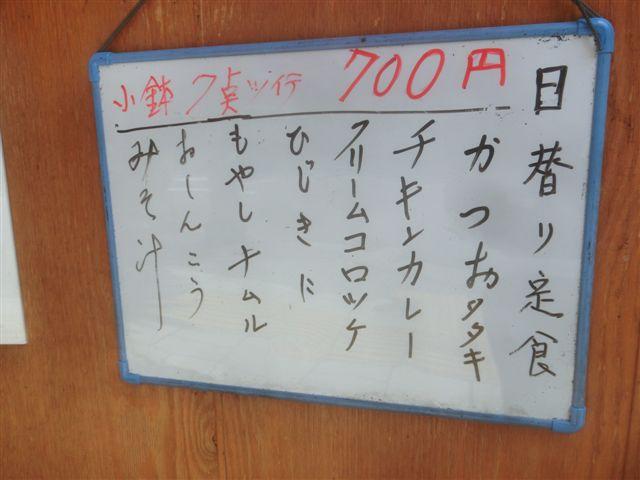 日替り定食
小鉢 7点ツイテ 700円
かつおタタキ
チキンカレー
クリームコロッケ
ひじきに
もやしナムル
おしんこう
みそ汁